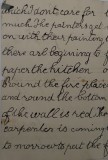 which I dont care for
much. The painters got
on with their painting &
there are beginning to
paper the kitchen
around the fire place
and round the bottom
of the wall is red. The
carpenter is coming
to morrow to put the